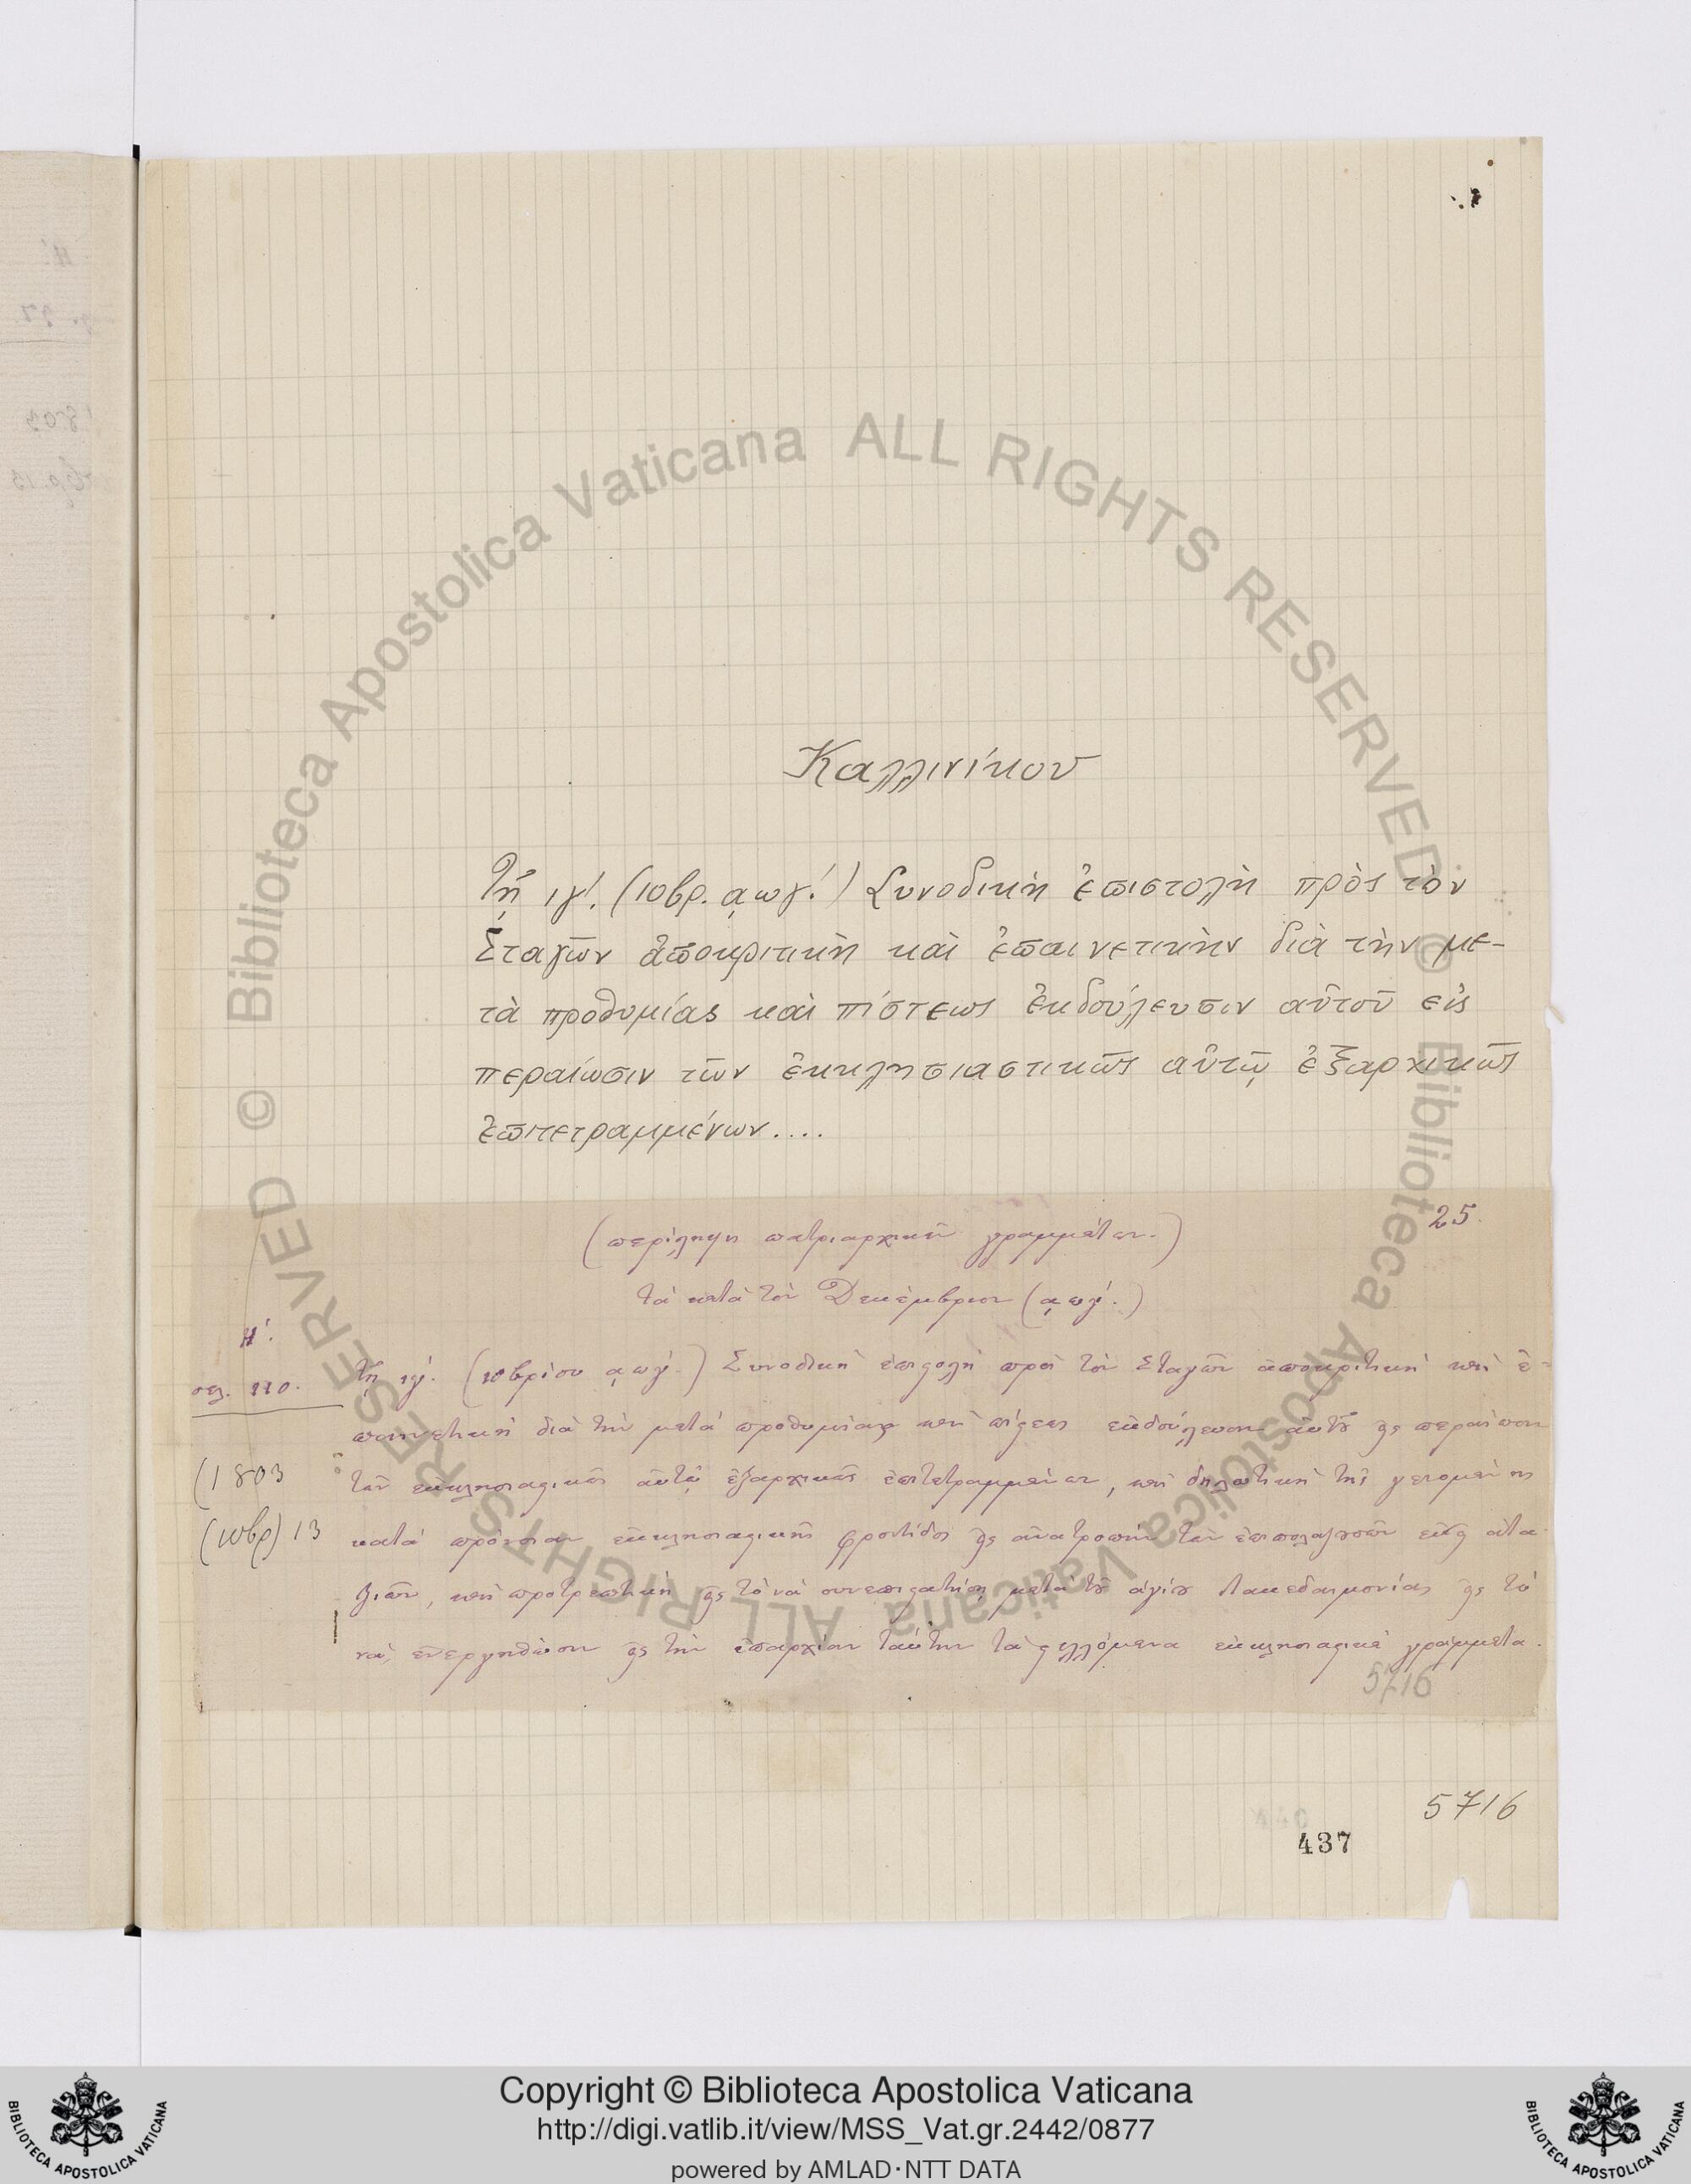 Καλλινίκου
Τῇ ιγʹ. (10βρ. ͵αωγʹ.) Συνοδικὴ ἐπιστολὴ πρὸς τὸν
Σταγῶν ἀποκριτικὴ καὶ ἐπαινετικὴν διὰ τὴν με-
τὰ προθυμίας καὶ πίστεως ἐκδούλευσιν αὐτοῦ εἰς
περαίωσιν τῶν ἐκκλησιαστικῶς αὐτῷ ἐξαρχικῶς
ἐπιτετραμμένων....
25.
(περίληψη πατριαρχικῶν γραμμάτων.)
τὰ κατὰ τὸν Δεκέμβριον (͵αωγʹ.)
Ηʹ.
σελ. 110.
Τῇ ιγʹ. (10βρίου ͵αωγʹ.) Συνοδικὴ ἐπιστολὴ πρὸς τὸν Σταγῶν ἀποκριτικὴ καὶ ἐ-
παινετικὴ διὰ τὴν μετὰ προθυμίας καὶ πίστεως ἐκδούλευσιν αὐτοῦ εἰς περαίωσιν
(1803
τῶν ἐκκλησιαστικῶς αὐτῷ ἐξαρχικῶς ἐπιτετραμμένων, καὶ δηλωτικὴ τῆς γενομένης
(10βρ) 13
κατὰ πρόνοιαν ἐκκλησιαστικῆς φροντίδος εἰς ἀνατροπὴν τῶν ἀτα-
ξιῶν, καὶ προτρεπτικὴ εἰς τὸ νὰ συνεπιστατήσῃ μετὰ τοῦ ἁγίου Λακεδαιμονίας εἰς τὸ
νὰ ἐνεργηθῶσιν εἰς τὴν ἐπαρχίαν ταύτην τὰ στελλόμενα ἐκκλησιαστικὰ γράμματα.
5716
5716
437
© Biblioteca Apostolica Vaticana ALL RIGHTS RESERVED © Biblioteca Apostolica Vaticana ALL RIGHTS RESERVED
Copyright © Biblioteca Apostolica Vaticana
http://digi.vatlib.it/view/MSS_Vat.gr.2442/0877
powered by AMLAD·NTT DATA
BIBLIOTECA APOSTOLICA VATICANA
BIBLIOTECA APOSTOLICA VATICANA